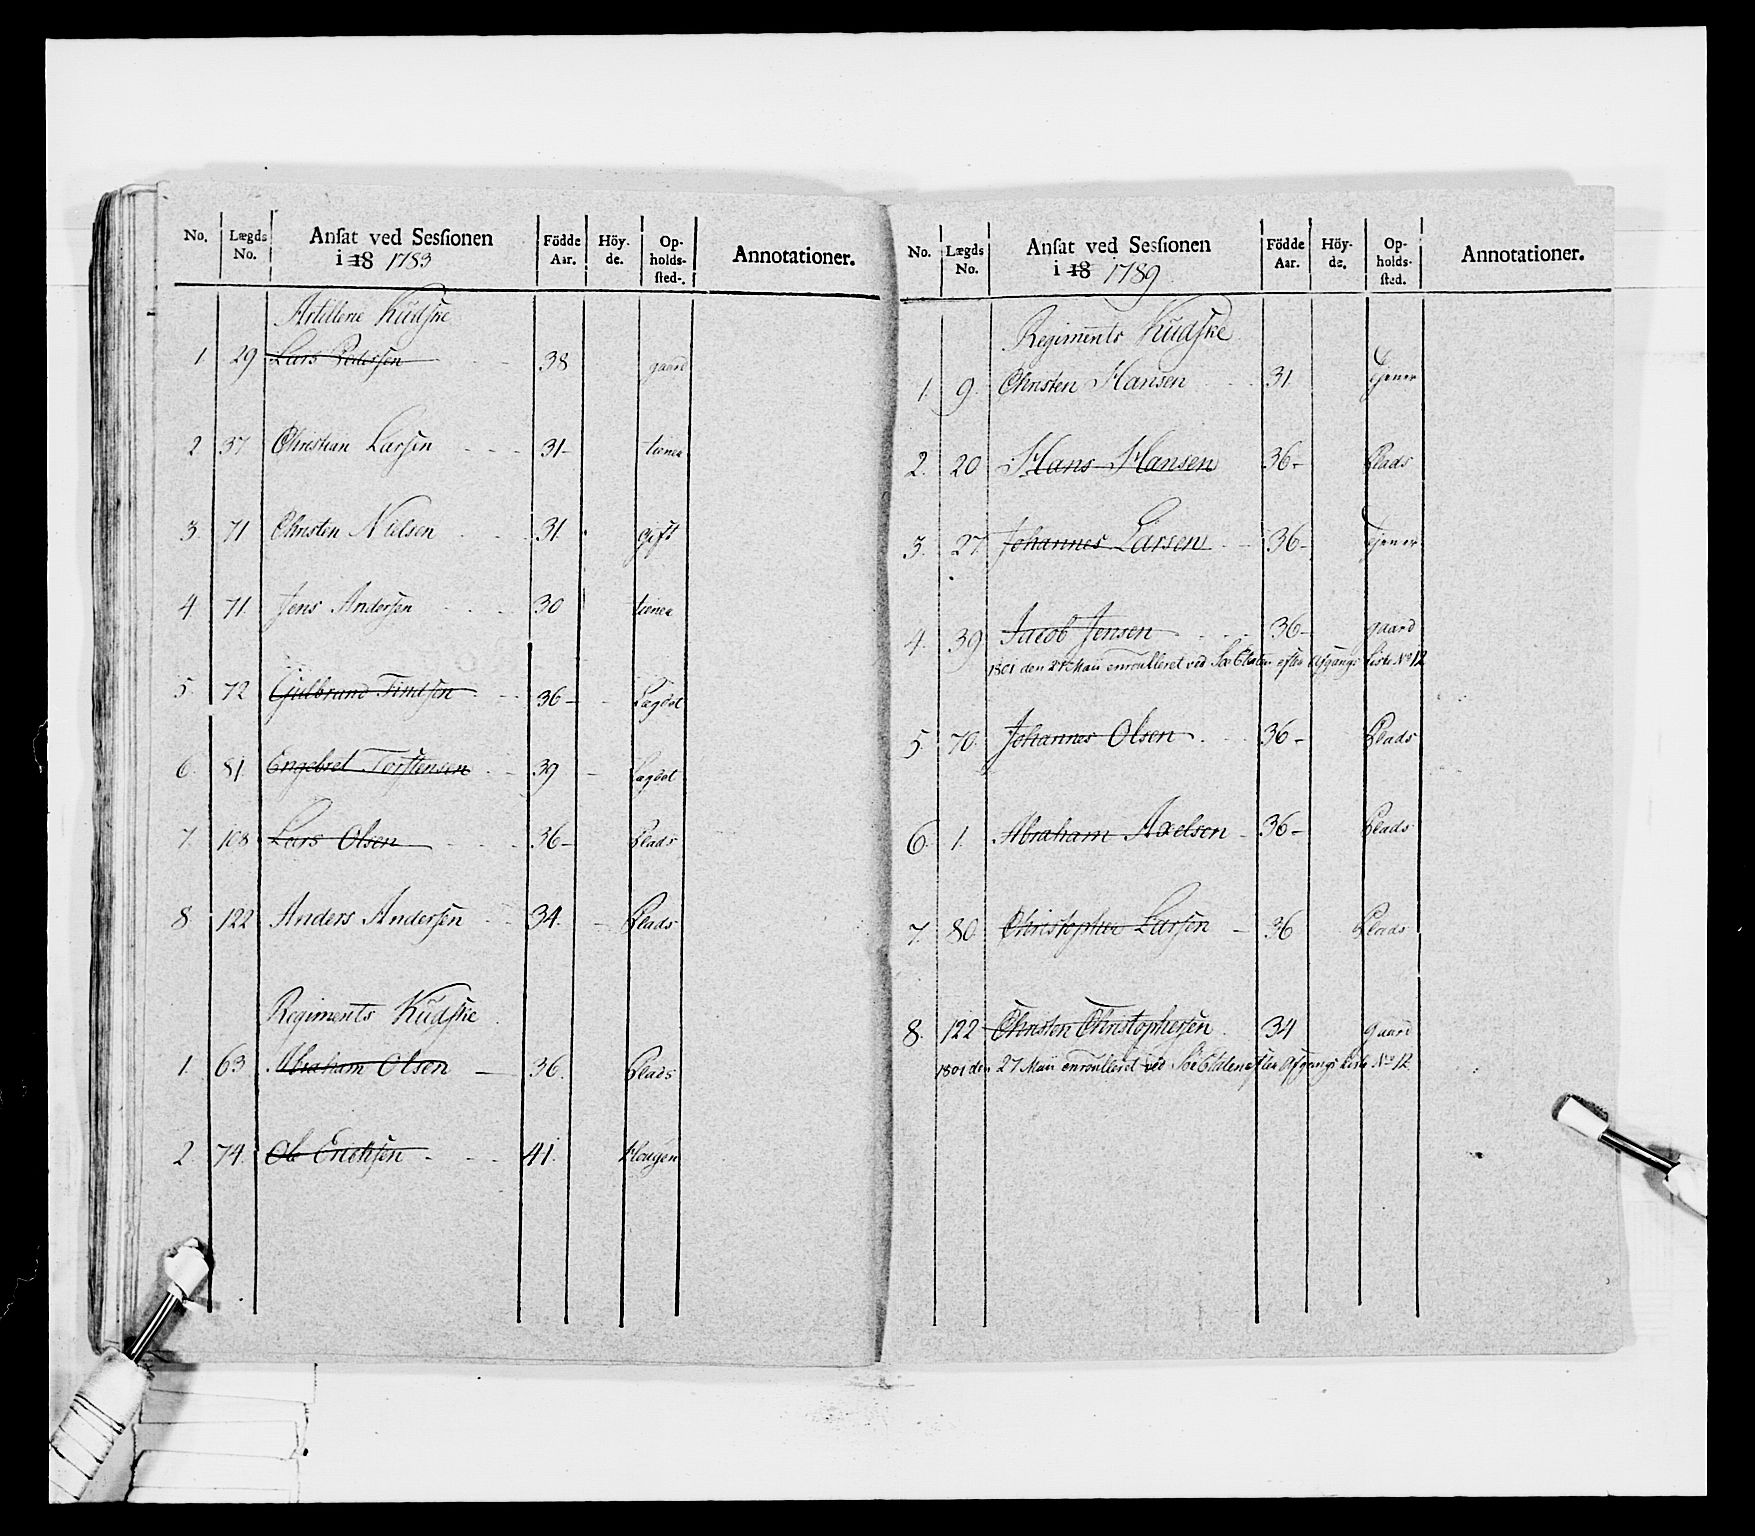 No. Lægds No. Ansat ved Sessionen i 18 1783 Födde Aar. Höy-de. Op-holds-sted. Annotationer.
Artillerie Kudske
1 29 Lars Pedersen 38 gaard
2 37 Christian Larsen 31 tienea
3. 71 Christen Nielsen 31. gift
4 71 Jens Andersen 30 tienea
5 72 Gulbrand Findsen 36 Lægdet
6. 81. Engebret Torstensen 39 Lægdet
7. 108 Lars Olsen 36 Plads
8 122 Anders Andersen 34. Plads
Regiments Kudske
1. 63. Abraham Olsen 36. Plads
2. 74. Ole Erichsen 41. Hougen
No. Lægds No. Ansat ved Sessionen i 18 1789 Födde Aar. Höy-de. Op-holds-sted. Annotationer.
Regiments Kudske
1. 9. Christen Hansen 31. Tjener
2. 20 Hans Hansen 36 Plads
3. 27 Johannes Larsen 36 Tjener
4. 39 Jacob Jensen 36 gaard
1801 den 27 Maii enroulleret ved Søe Etaten efter Afgangs Liste No 12
5. 70. Johannes Olsen 36 Plads
6. 1. Abraham Axelsen 36 Plads
7. 80 Christopher Larsen 36 Plads
8. 122 Christen Christophersen 34 gaard
1801 den 27 Maii enroulleret ved Søe Etaten efter Afgangs Liste No 12